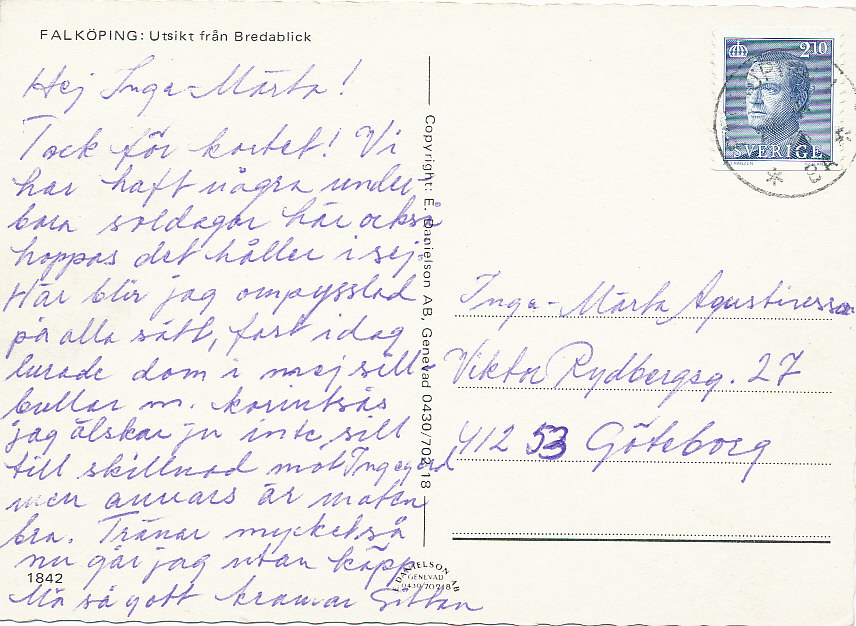 FALKÖPING: Utsikt från Bredablick
Hej Inga-Märta!
Tack för kortet! Vi
har haft några under-
bara soldagar här också
hoppas det håller i sej.
Här blir jag ompysslad
på alla sätt, fast idag
lurade dom i mej sill-
bullar m. korintsås
jag älskar ju inte sill
till skillnad mot Ingegerd
men annars är maten
bra. Tränar mycket så
nu går jag utan käpp
Må så gott kramar Gittan
1842
Copyright: E. Danielson AB, Genevad 0430/702 18
E. DANIELSON AB
GENEVAD
0430/70218
210
SVERIGE
Inga-Märta Agustinsson
Viktor Rydbergsg. 27
412 53 Göteborg